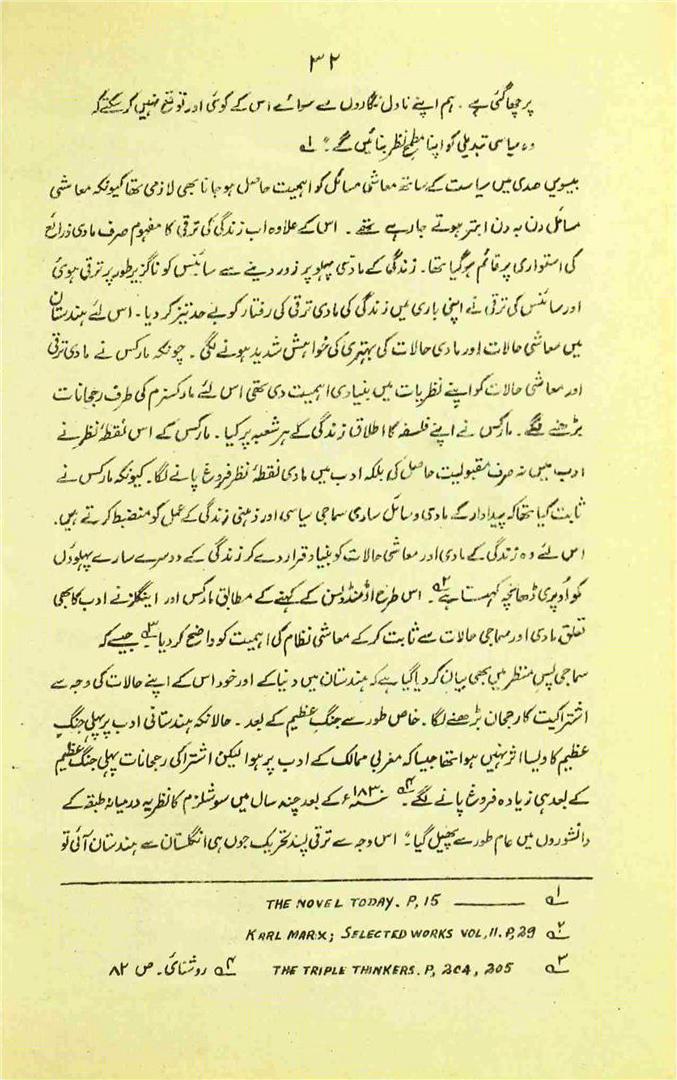 ۳۲
پر چھا گئی ہے۔ ہم اپنے ناول نگاروں سے سوائے اس کے کوئی اور توقع نہیں کر سکتے کہ
وہ سیاسی تبدیلی کو اپنا مطمح نظر بنائیں گے۔" ۱؎
بیسویں صدی میں سیاست کے ساتھ معاشی مسائل کو اہمیت حاصل ہو جانا بھی لازمی تھا کیونکہ معاشی
مسائل دن بہ دن ابتر ہوتے جا رہے تھے۔ اس کے علاوہ اب زندگی کی ترقی کا مفہوم صرف مادی ذرائع
کی استواری پر قائم ہو گیا تھا۔ زندگی کے مادّی پہلو پر زور دینے سے سائنس کو ناگزیر طور پر ترقی ہوئی
اور سائنس کی ترقی نے اپنی باری میں زندگی کی مادی ترقی کی رفتار کو بے حد تیز کر دیا۔ اس لئے ہندستان
میں معاشی حالات اور مادی حالات کی بہتری کی خواہش شدید ہونے لگی۔ چونکہ مارکس نے مادی ترقی
اور معاشی حالات کو اپنے نظریات میں بنیادی اہمیت دی تھی اس لئے مارکسزم کی طرف رجحانات
بڑھنے لگے۔ مارکس نے اپنے فلسفہ کا اطلاق زندگی کے ہر شعبہ پر کیا۔ مارکس کے اس نقطۂ نظر نے
ادب میں نہ صرف مقبولیت حاصل کی بلکہ ادب میں مادی نقطۂ نظر فروغ پانے لگا۔ کیونکہ مارکس نے
ثابت کیا تھا کہ پیداوار کے مادی وسائل ساری سماجی سیاسی اور ذہنی زندگی کے عمل کو منضبط کرتے ہیں۔
اس لئے وہ زندگی کے مادی اور معاشی حالات کو بنیاد قرار دے کر زندگی کے دوسرے سارے پہلوؤں
کو اُوپری ڈھانچہ کہتا ہے ۲؎۔ اس طرح اڈمنڈ ولسن کے کہنے کے مطابق مارکس اور اینگلز نے ادب کا بھی
تعلق مادی اور سماجی حالات سے ثابت کر کے معاشی نظام کی اہمیت کو واضح کر دیا ۳؎۔ جیسے کہ
سماجی پس منظر میں بھی بیان کر دیا گیا ہے کہ ہندستان میں دنیا کے اور خود اس کے اپنے حالات کی وجہ سے
اشتراکیت کا رجحان بڑھنے لگا۔ خاص طور سے جنگ عظیم کے بعد۔ حالانکہ ہندستانی ادب پر پہلی جنگ
عظیم کا ویسا اثر نہیں ہوا تھا جیسا کہ مغربی ممالک کے ادب پر ہوا لیکن اشتراکی رجحانات پہلی جنگ عظیم
کے بعد ہی زیادہ فروغ پانے لگے ۴؎۔ ۱۸۳۰ء کے بعد چند سال میں سوشلزم کا نظریہ درمیانہ طبقہ کے
دانشوروں میں عام طور سے پھیل گیا۔" اس وجہ سے ترقی پسند تحریک جوں ہی انگلستان سے ہندستان آئی تو
۱؎ ——— THE NOVEL TODAY. P, 15
۲؎ KARL MARX; SELECTED WORKS VOL, II. P, 29
۳؎ THE TRIPLE THINKERS. P, 204, 205 ۴؎ روشنائی۔ ص ۸۲